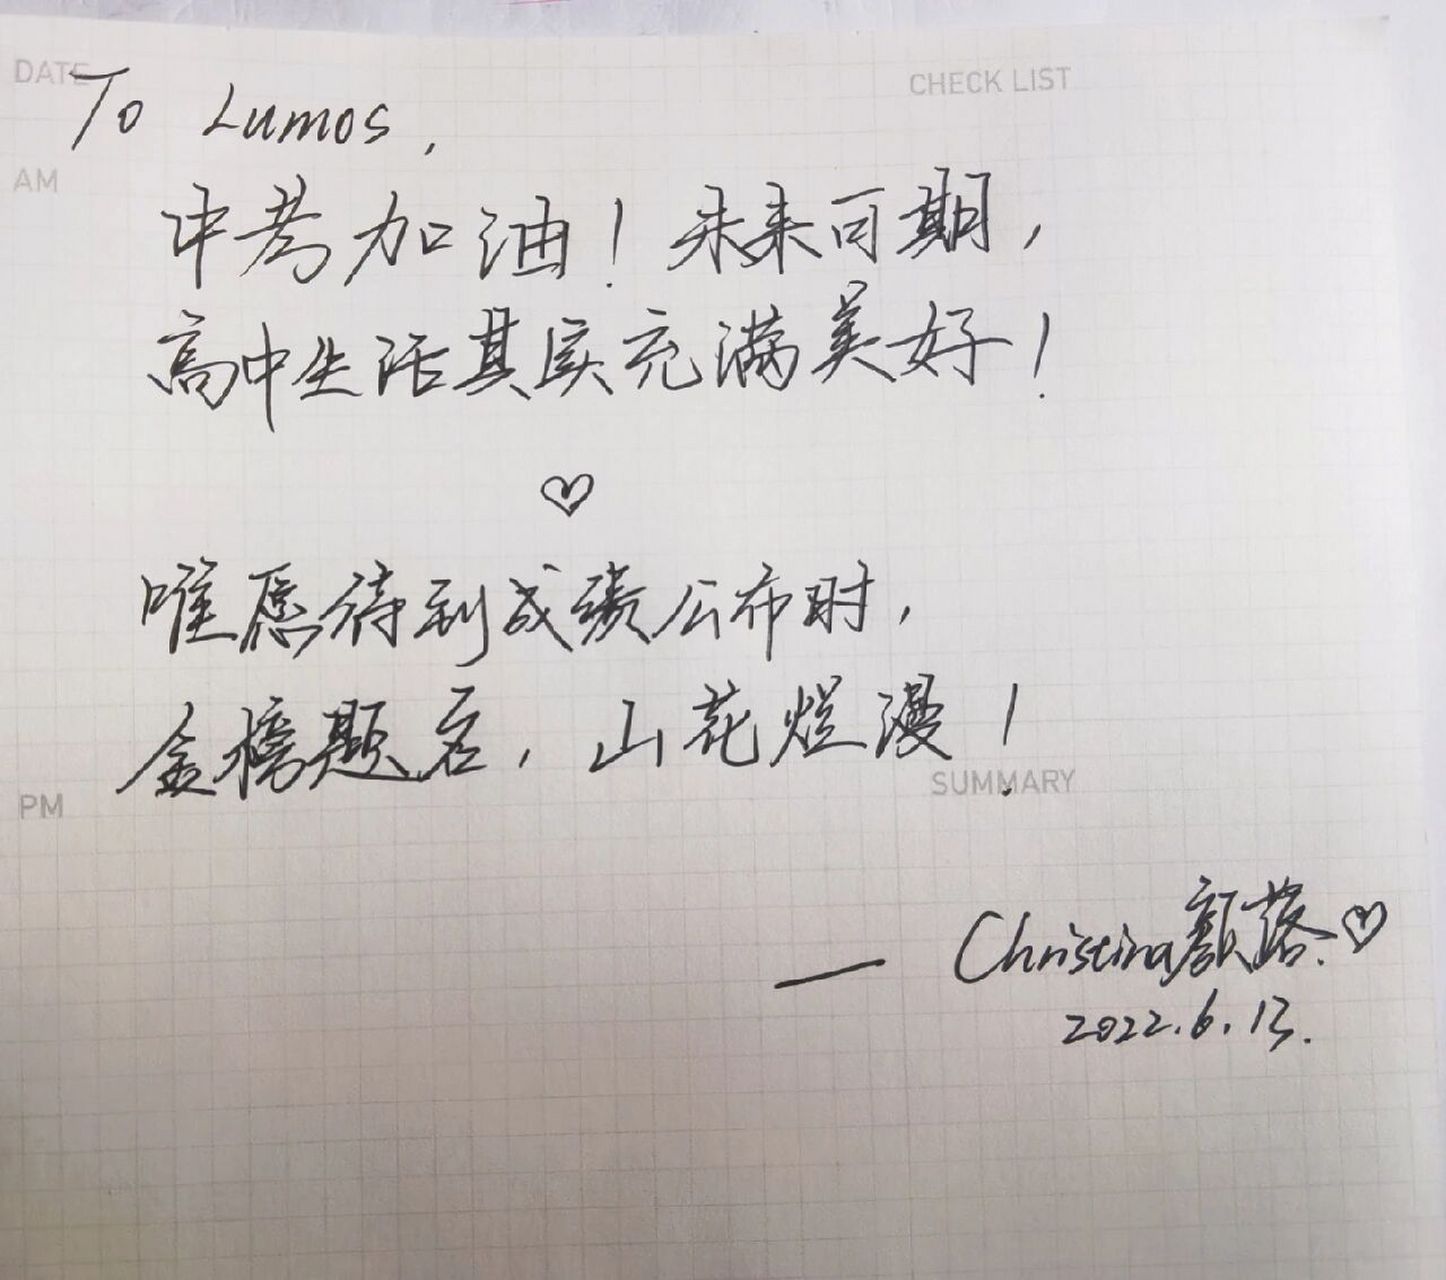 DATE
CHECK LIST
To Lumos,
AM
中考加油！未来可期，
高中生活其实充满美好！
♡
唯愿待到成绩公布时，
金榜题名，山花烂漫！
SUMMARY
PM
— Christina颜落.♡
2022.6.13.